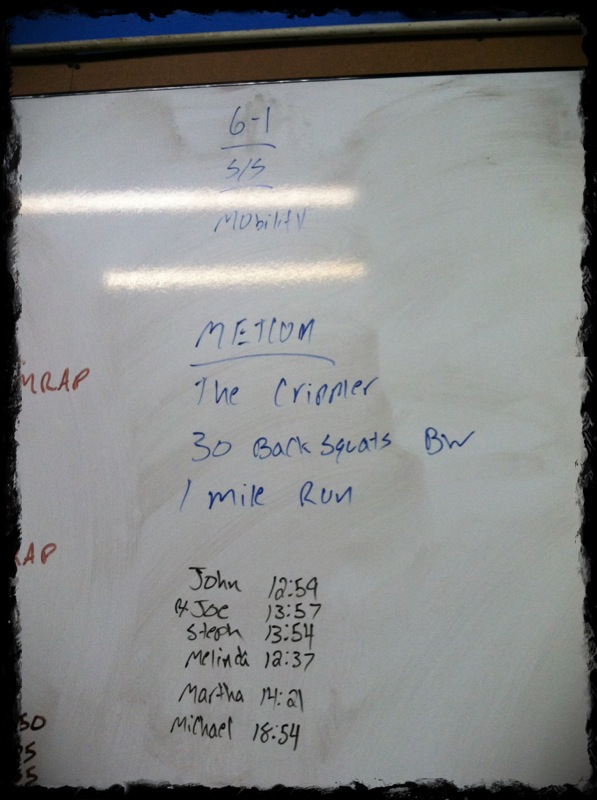 6-1
S/S
Mobility
METCON
The Crippler
30 Back Squats BW
1 mile Run
MRAP
RAP
John 12:59
Rx Joe 13:57
Steph 13:54
Melinda 12:37
Martha 14:21
Michael 18:54
50
5
5